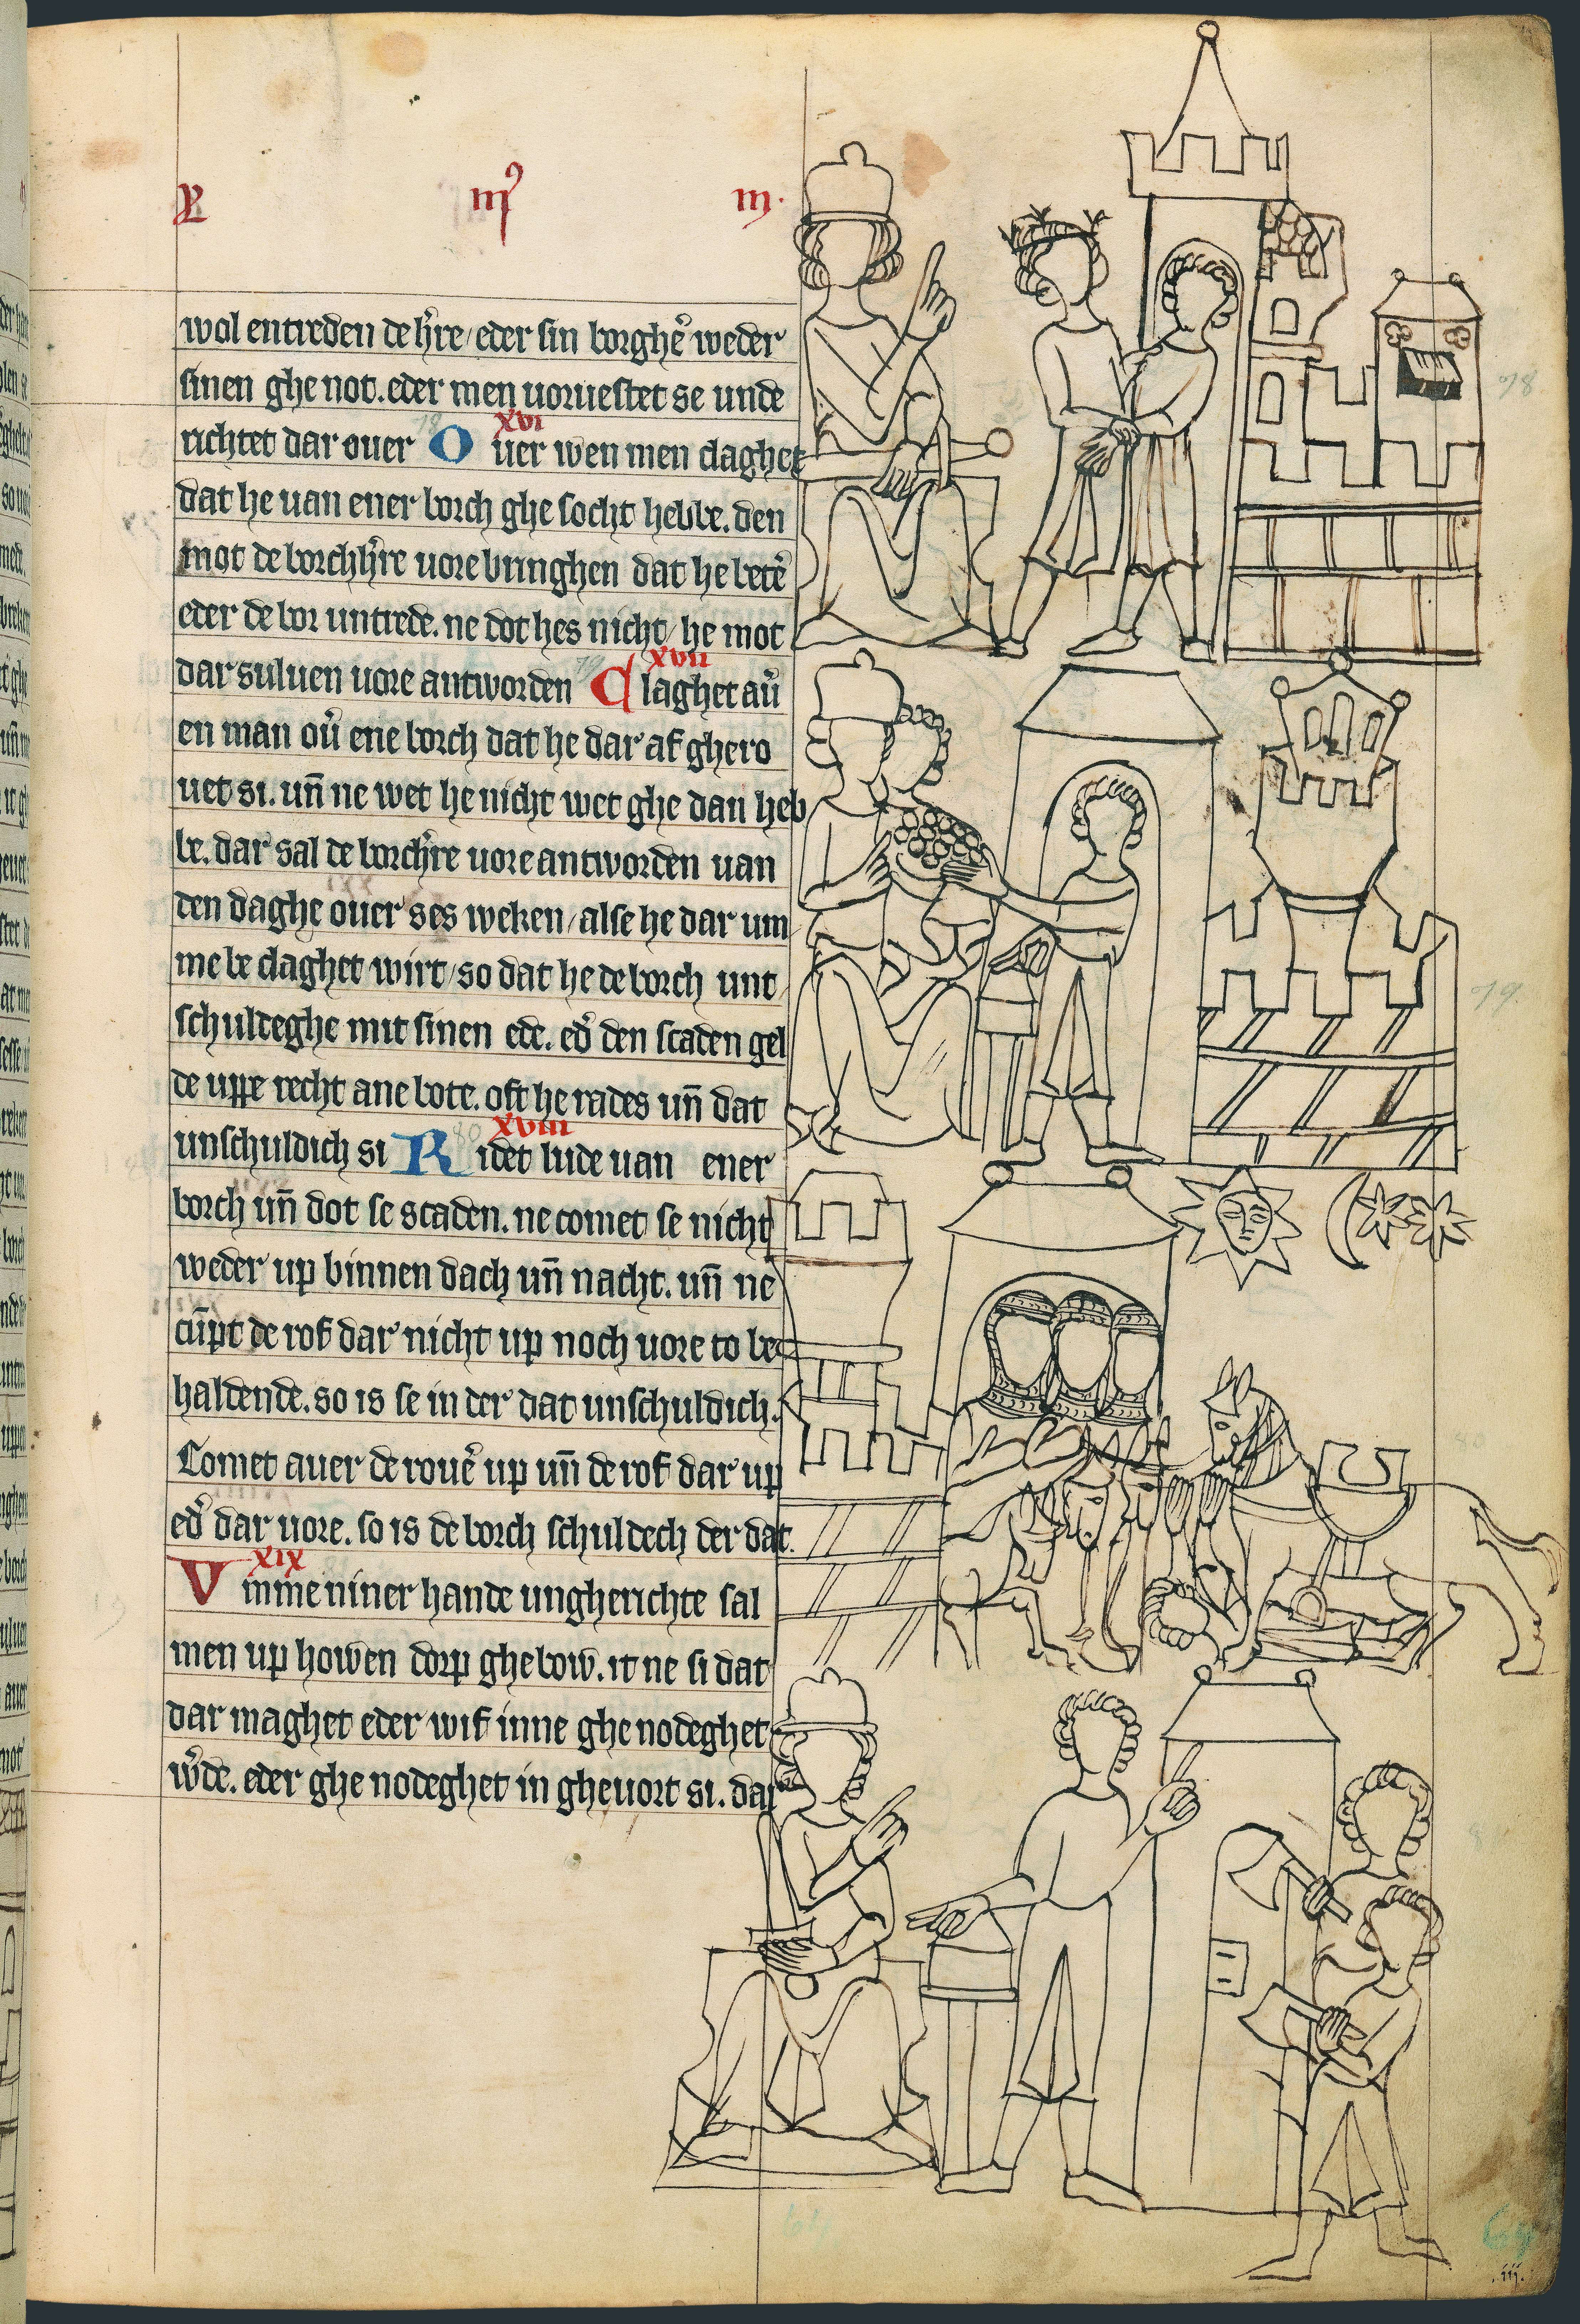 wol entreden de h̓re / eder sin borghe᷑ weder
sinen ghe not. eder men voruestet se unde
richtet dar ouer O xvi uer wen men claghet
dat he uan ener borch ghe socht hebbe. den
mot de borchh̓re uore bringhen dat he bete᷑
eder de bor untrede. ne dot hes nicht / he mot
dar suluen uore antworden C xvii laghet au᷑
en man ou᷑ ene borch dat he dar af ghero
uet si. un̄ ne wet he nicht wet ghe dan heb
be. dar sal de borch᷑re uore antworden uan
den daghe ouer ses weken / alse he dar um
me be claghet wirt / so dat he de borch unt
schuldeghe mit sinen ede. ed᷑ den scaden gel
de uppe recht ane bote. oft he rades un̄ dat
unschuldich si R xviii idet lude uan ener
borch un̄ dot se scaden. ne comet se nicht
weder up binnen dach un̄ nacht. un̄ ne
cūpt de rof dar nicht up noch uore to be
haldende. so is se in der dat unschuldich.
Comet auer de roue᷑ up un̄ de rof dar up
ed᷑ dar uore. so is de borch schuldech der dat.
V xix mme niner hande ungherichte sal
men up howen dorp ghebow. it ne si dat
dar maghet eder wif inne ghe nodeghet
w᷑de. eder ghe nodeghet in gheuort si. dar
78
79
80
64
iij.